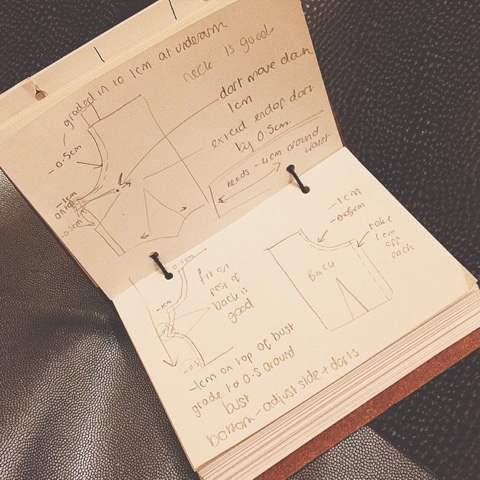 graded in to 1cm at underarm
neck is good
dart move down
1cm
extend end of dart
by 0.5cm
needs -4cm around
waist
-0.5cm
-1cm
-0.5cm
-1cm
-0.5cm
take
1cm
off
each
Back
0.5cm
-1cm
fit on
rest of
back is
good
-1cm on top of bust
grade to 0.5 around
bust
bottom - adjust side + darts